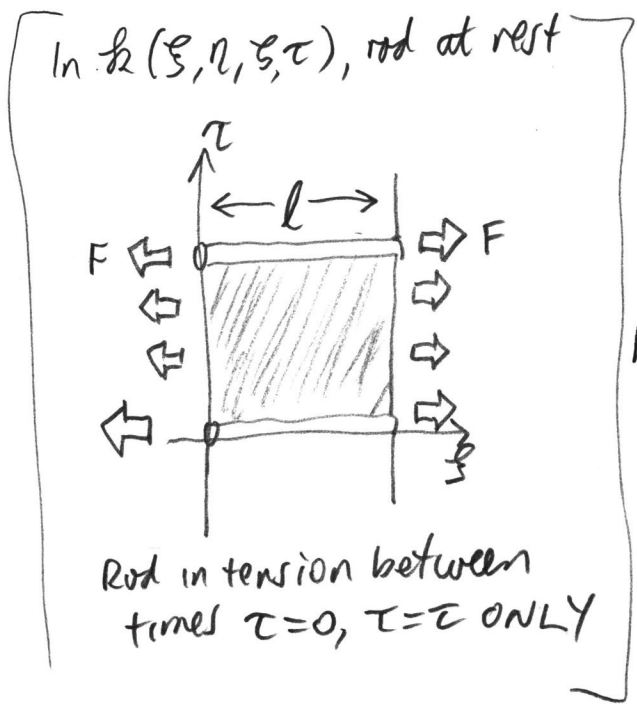 In k (ξ, η, ζ, τ), rod at rest
τ
l
F
F
ξ
Rod in tension between
times τ=0, τ=τ ONLY